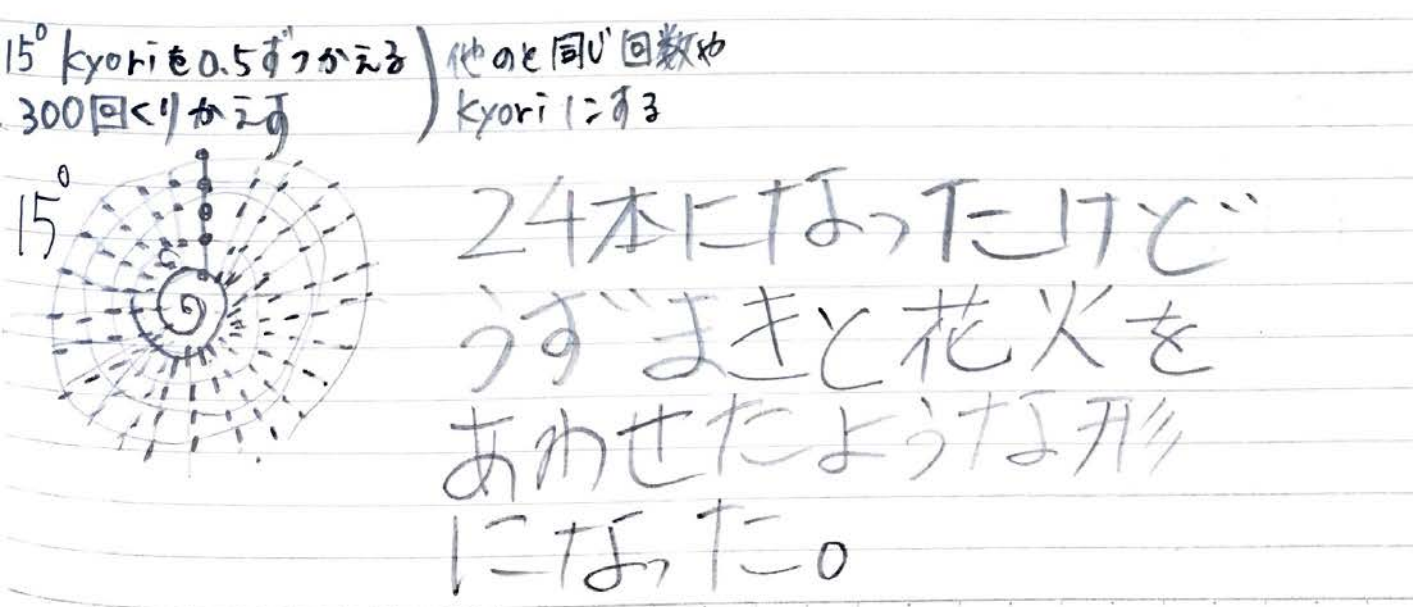 15° kyoriを0.5ずつかえる
300回くりかえす
) 他のと同じ回数や
kyoriにする
15°
24本になったけど
うずまきと花火を
あわせたような形
になった。